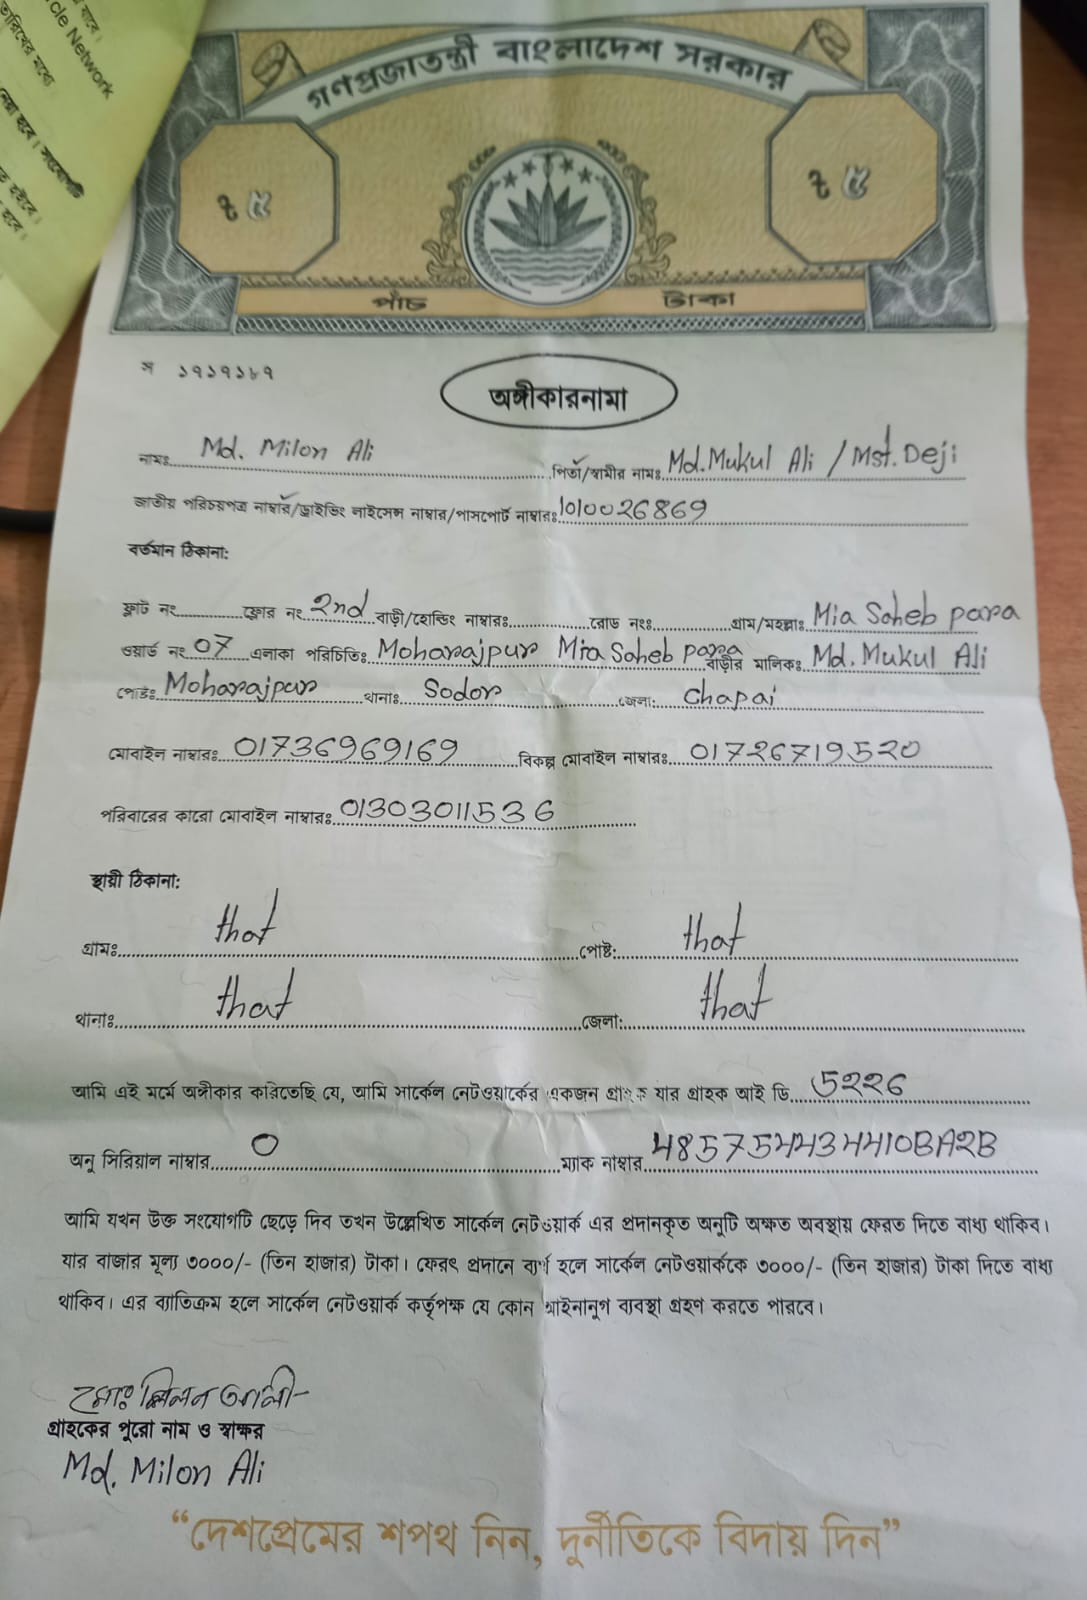 যাবে।
cle Network
তারিখের মধ্যে
নেয়া হবে। সংযোগটি
হইবে।
হবে।
গণপ্রজাতন্ত্রী বাংলাদেশ সরকার
৳ ৫ ৳ ৫
পাঁচ টাকা
স ১৭১৭১৮৭
অঙ্গীকারনামা
নামঃ Md. Milon Ali পিতা/স্বামীর নামঃ Md. Mukul Ali / Mst. Deji
জাতীয় পরিচয়পত্র নাম্বার/ড্রাইভিং লাইসেন্স নাম্বার/পাসপোর্ট নাম্বারঃ 1010026869
বর্তমান ঠিকানা:
ফ্লাট নং ফ্লোর নং 2nd বাড়ী/হোল্ডিং নাম্বারঃ রোড নংঃ গ্রাম/মহল্লাঃ Mia Saheb para
ওয়ার্ড নং 07 এলাকা পরিচিতিঃ Moharajpur Mia Saheb para বাড়ীর মালিকঃ Md. Mukul Ali
পোষ্টঃ Moharajpur থানাঃ Sodor জেলা: Chapai
মোবাইল নাম্বারঃ 01736969169 বিকল্প মোবাইল নাম্বারঃ 01726719520
পরিবারের কারো মোবাইল নাম্বারঃ 01303011536
স্থায়ী ঠিকানা:
গ্রামঃ that পোষ্ট: that
থানাঃ that জেলা: that
আমি এই মর্মে অঙ্গীকার করিতেছি যে, আমি সার্কেল নেটওয়ার্কের একজন গ্রাহক যার গ্রাহক আই ডি 5226
অনু সিরিয়াল নাম্বার 0 ম্যাক নাম্বার 485754434410BA2B
আমি যখন উক্ত সংযোগটি ছেড়ে দিব তখন উল্লেখিত সার্কেল নেটওয়ার্ক এর প্রদানকৃত অনুটি অক্ষত অবস্থায় ফেরত দিতে বাধ্য থাকিব।
যার বাজার মূল্য ৩০০০/- (তিন হাজার) টাকা। ফেরৎ প্রদানে ব্যর্থ হলে সার্কেল নেটওয়ার্ককে ৩০০০/- (তিন হাজার) টাকা দিতে বাধ্য
থাকিব। এর ব্যাতিক্রম হলে সার্কেল নেটওয়ার্ক কর্তৃপক্ষ যে কোন আইনানুগ ব্যবস্থা গ্রহণ করতে পারবে।
মোঃ মিলন আলী
গ্রাহকের পুরো নাম ও স্বাক্ষর
Md. Milon Ali
“দেশপ্রেমের শপথ নিন, দুর্নীতিকে বিদায় দিন”